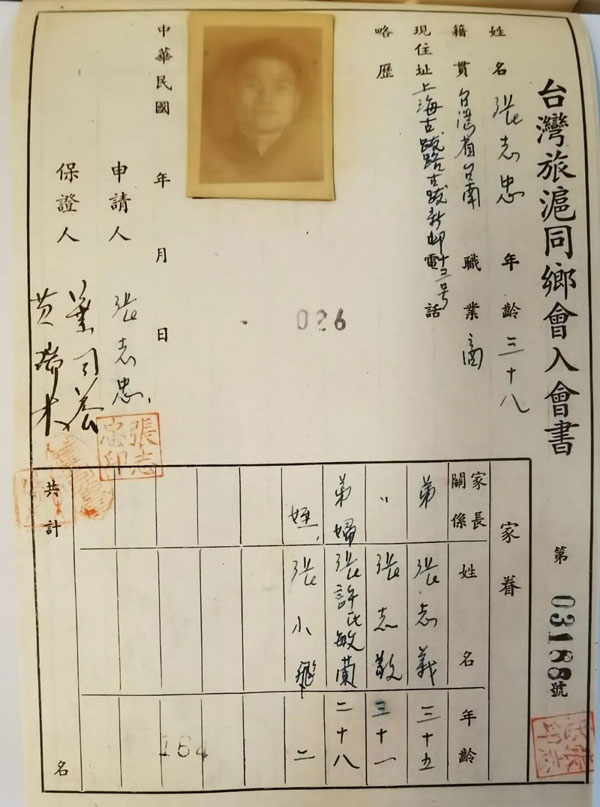 台灣旅滬同鄉會入會書
第03188號
姓名 張志忠 年齡 三十八
籍貫 台灣省台南 職業 商
現住址 上海古拔路古拔新邨十三号 電話
略歷
026
中華民國 年 月 日
申請人 張志忠
張志忠印
保證人
家眷
家長關係 姓名 年齡
弟 張志義 三十五
〃 張志敬 三十一
弟婦 張許氏敏蘭 二十八
姪 張小飛 二
164
共計 名